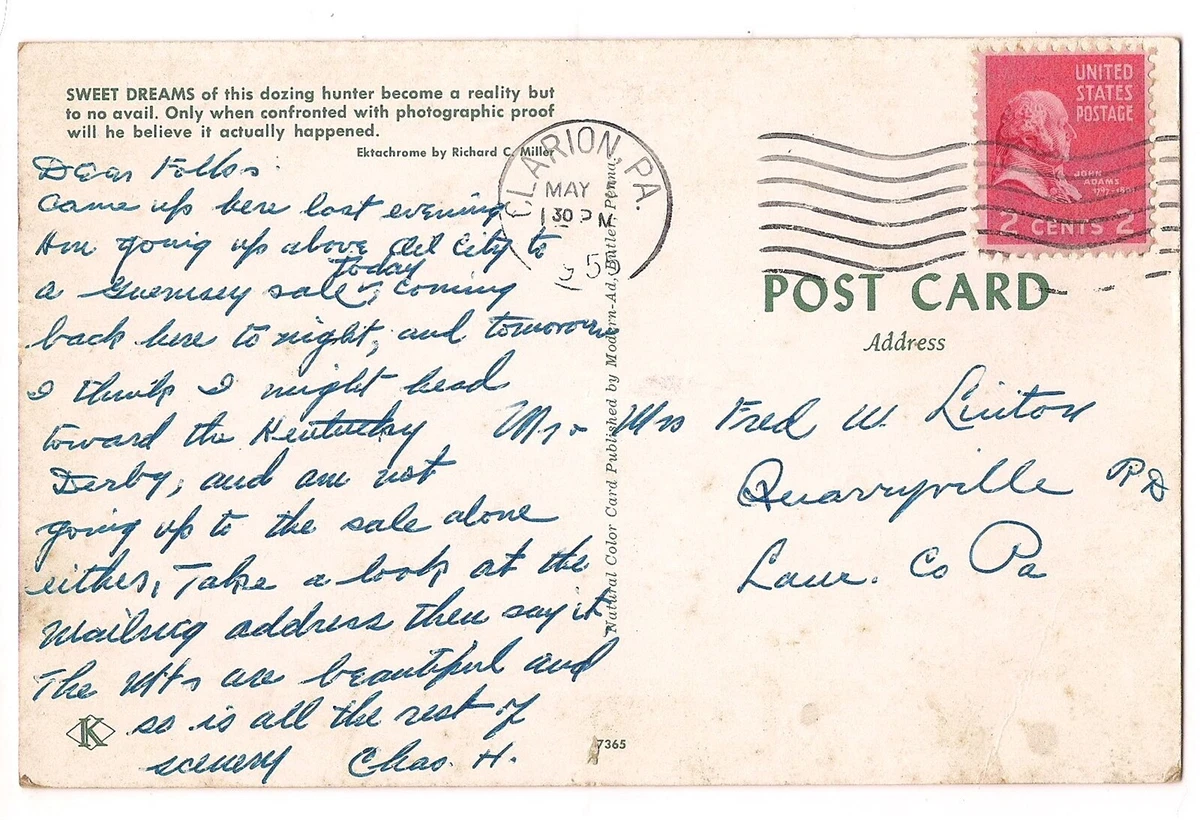 SWEET DREAMS of this dozing hunter become a reality but
to no avail. Only when confronted with photographic proof
will he believe it actually happened.
Ektachrome by Richard C. Miller
Dear Folks.
Came up here last evening
Am going up above Oil City to
a Guernsey sale today, coming
back here to night, and tomorrow
I think I might head
toward the Kentucky
Derby, and am not
going up to the sale alone
either, Take a look at the
Mailing address then say it
The Mts are beautiful and
so is all the rest of
scenery Chas. H.
K
CLARION, PA.
MAY
1 30 PM
Natural Color Card Published by Modern-Ad, Butler, Penna.
7365
UNITED
STATES
POSTAGE
JOHN
ADAMS
1797-1801
2 CENTS 2
POST CARD
Address
Mr & Mrs Fred W. Linton
Quarryville RD
Lanc. Co Pa